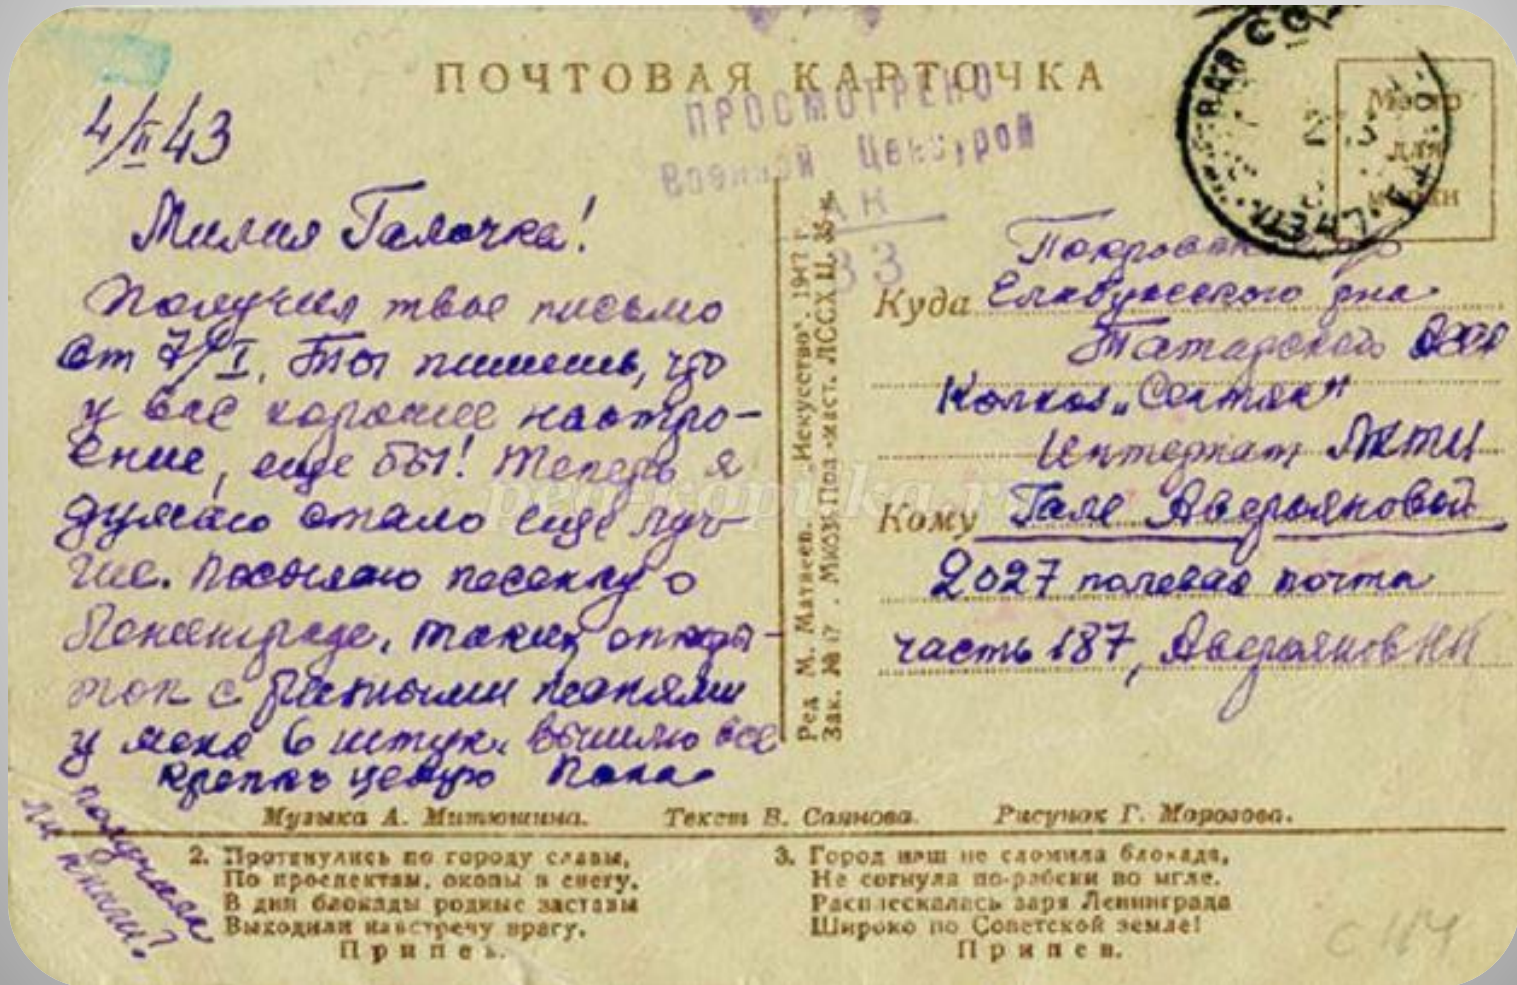 ПОЧТОВАЯ КАРТОЧКА
ПРОСМОТРЕНО
Военной Цензурой
33
Место
для
марки
4/II 43
Милая Галочка!
Получил твое письмо
от 7/I. Ты пишешь, что
у вас хорошее настро-
ение, еще бы! Теперь я
думаю стало еще луч-
ше. Посылаю песенку о
Ленинграде, таких откры-
ток с разными песнями
у меня 6 штук. Вышлю все
крепко целую Папа
получила
ли книги?
Ред. М. Матвеев. „Искусство". 194 г.
Зак. № 17
Куда
Елабужского р-на
Татарской АССР
Колхоз „Сентяк"
Интернат
Кому Гале Аверьяновой
2027 полевая почта
часть 187, Аверьянов НН
Музыка А. Митюшина. Текст В. Саянова. Рисунок Г. Морозова.
2. Протянулись по городу славы,
По проспектам, окопы в снегу.
В дни блокады родные заставы
Выходили навстречу врагу.
Припев.
3. Город наш не сломила блокада,
Не согнула по-рабски во мгле.
Расплескалась заря Ленинграда
Широко по Советской земле!
Припев.